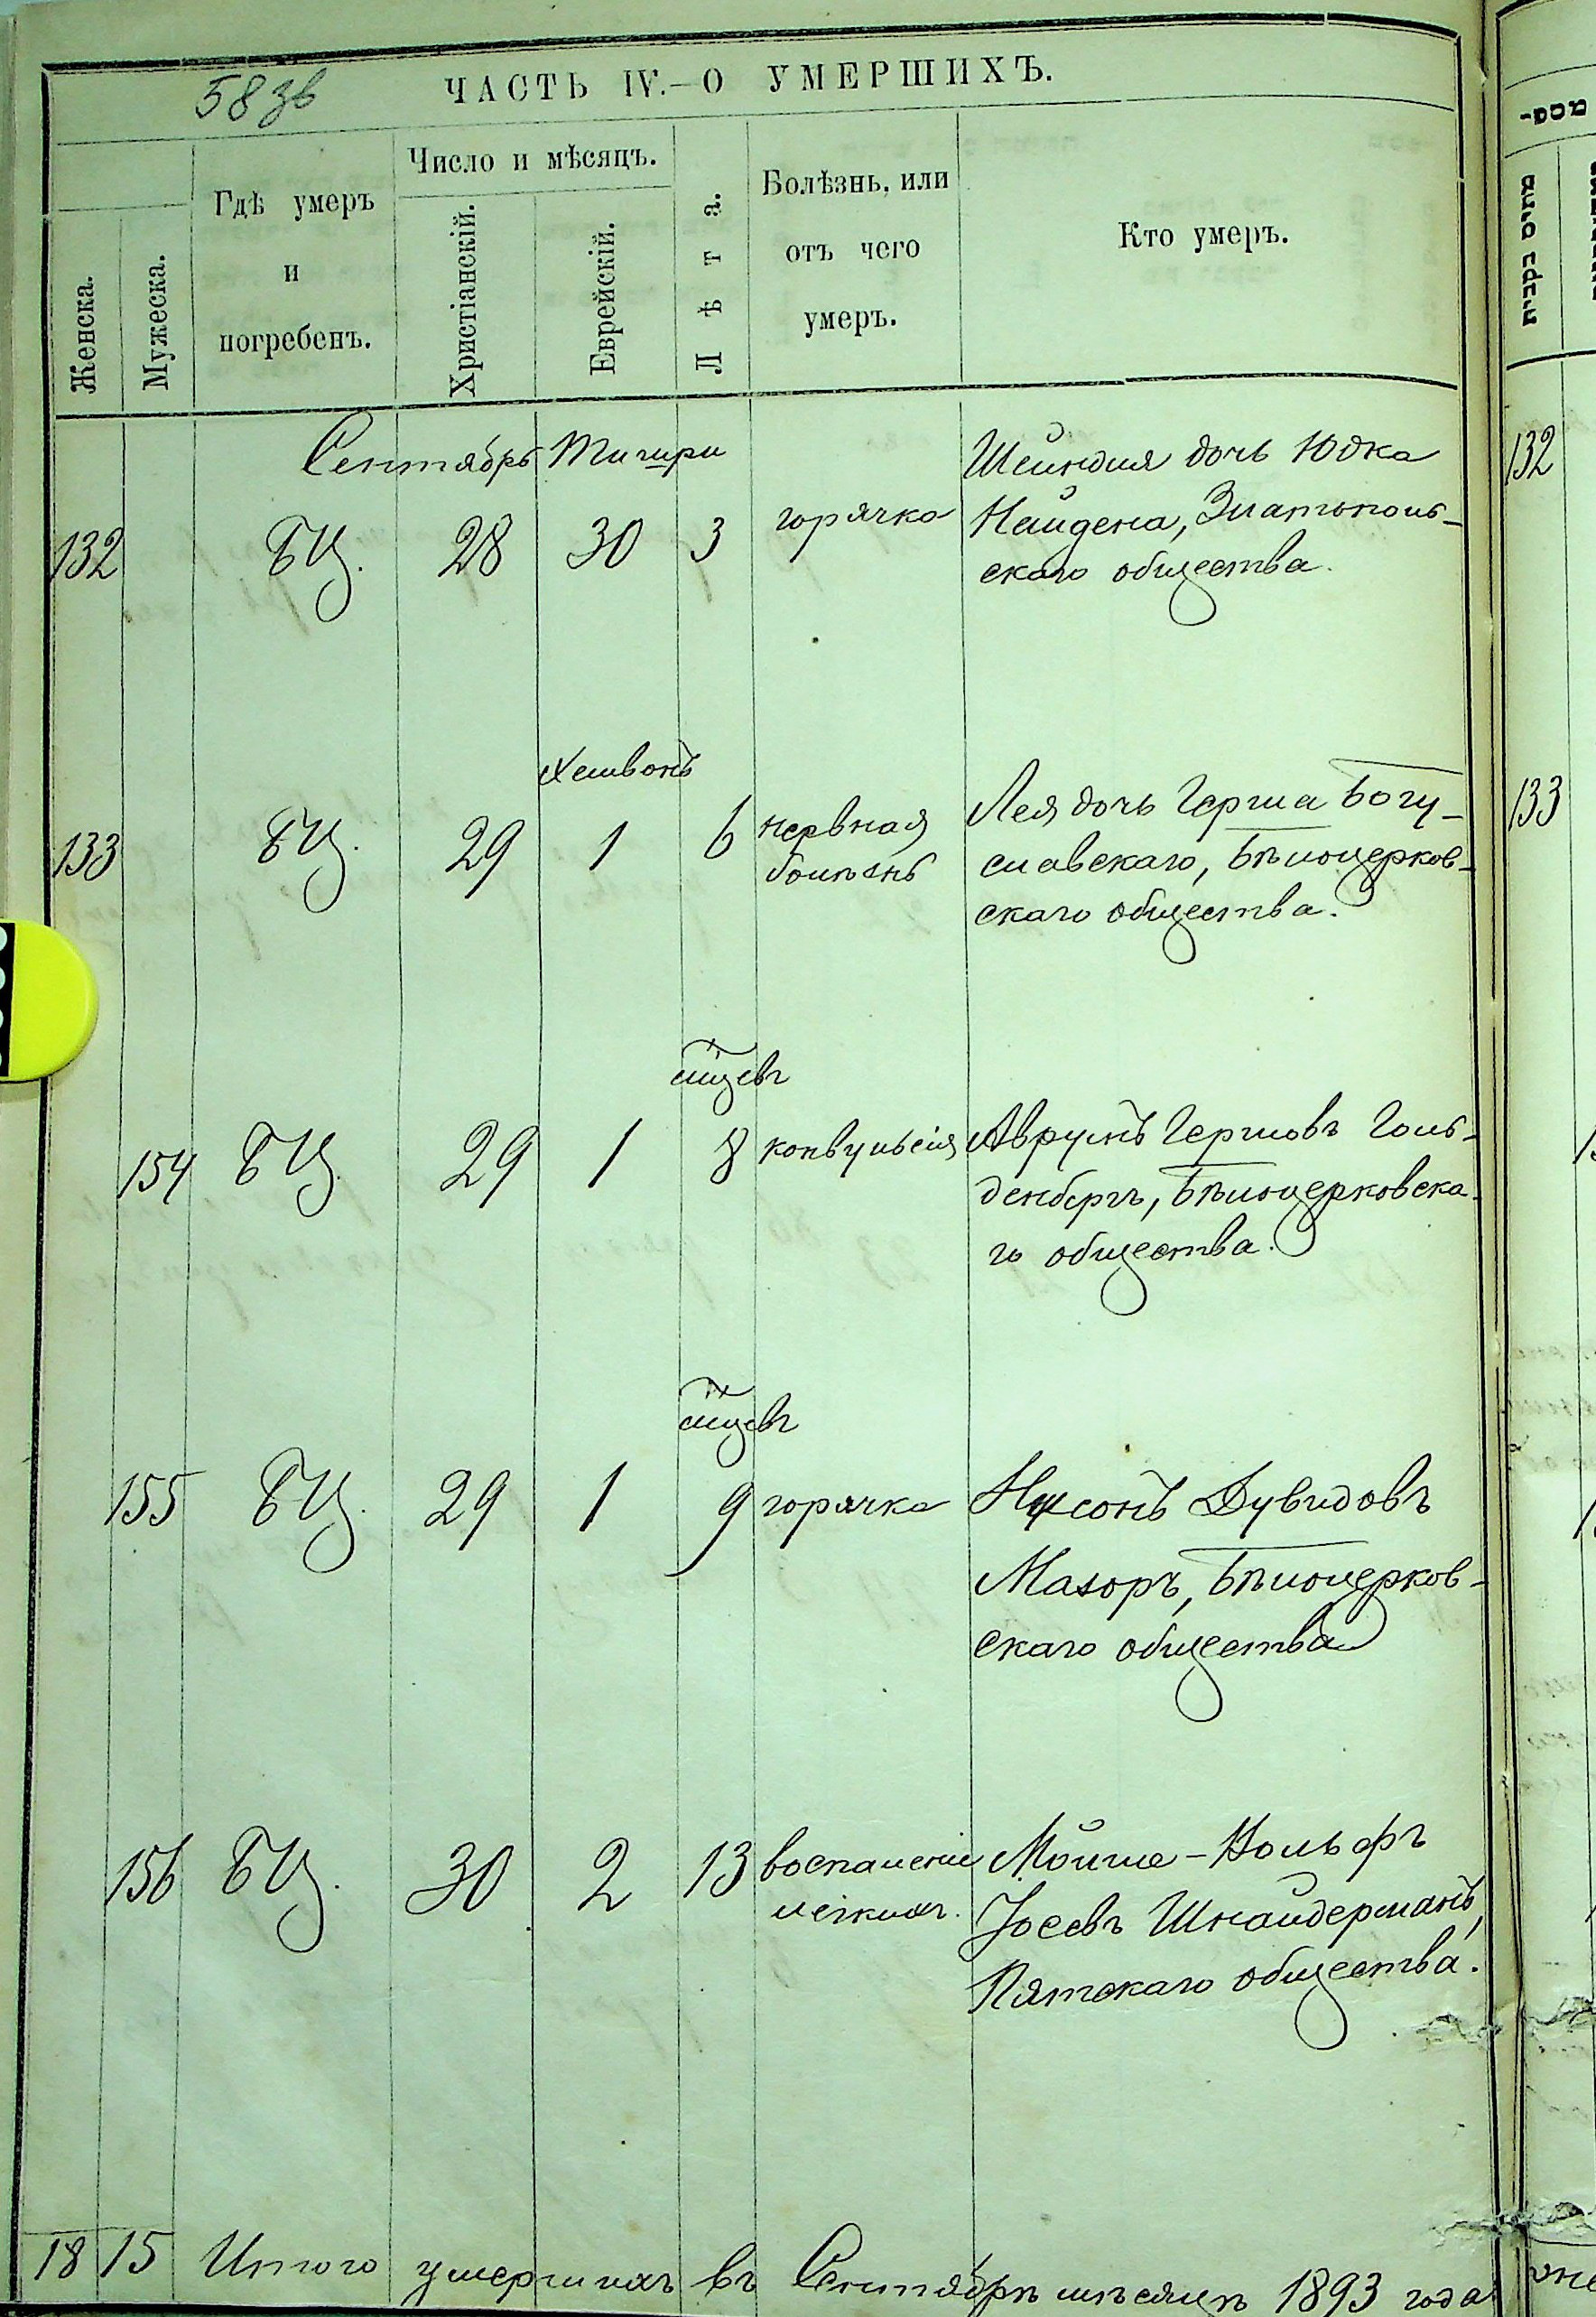 58 зв
ЧАСТЬ IV.–О УМЕРШИХЪ.
Женска.
Мужеска.
Гдѣ умеръ
и
погребенъ.
Число и мѣсяцъ.
Христіанскій.
Еврейскій.
Лѣта.
Болѣзнь, или
отъ чего
умеръ.
Кто умеръ.
Сентябрь Тишри
132 БЦ. 28 30 3 горячка
Шейндля дочь Юдка
Найдена, Златополь-
скаго общества.
Хешвонъ
133 БЦ. 29 1 6 нервная
болѣзнь
Лея дочь Герша Богу-
славскаго, Бѣлоцерков-
скаго общества.
м-цевъ
154 БЦ. 29 1 8 конвульсія
Аврумъ Гершовъ Голь-
денбергъ, Бѣлоцерковска-
го общества.
м-цевъ
155 БЦ. 29 1 9 горячка
Нусонъ Дувидовъ
Мазоръ, Бѣлоцерков-
скаго общества
156 БЦ. 30 2 13 воспаленіе
легкихъ.
Мойше-Вольфъ
Іосевъ Шнайдерманъ,
Пятскаго общества.
18 15 Итого умершихъ въ Сентябрѣ мѣсяцѣ 1893 года
מתים נקבות
132
133